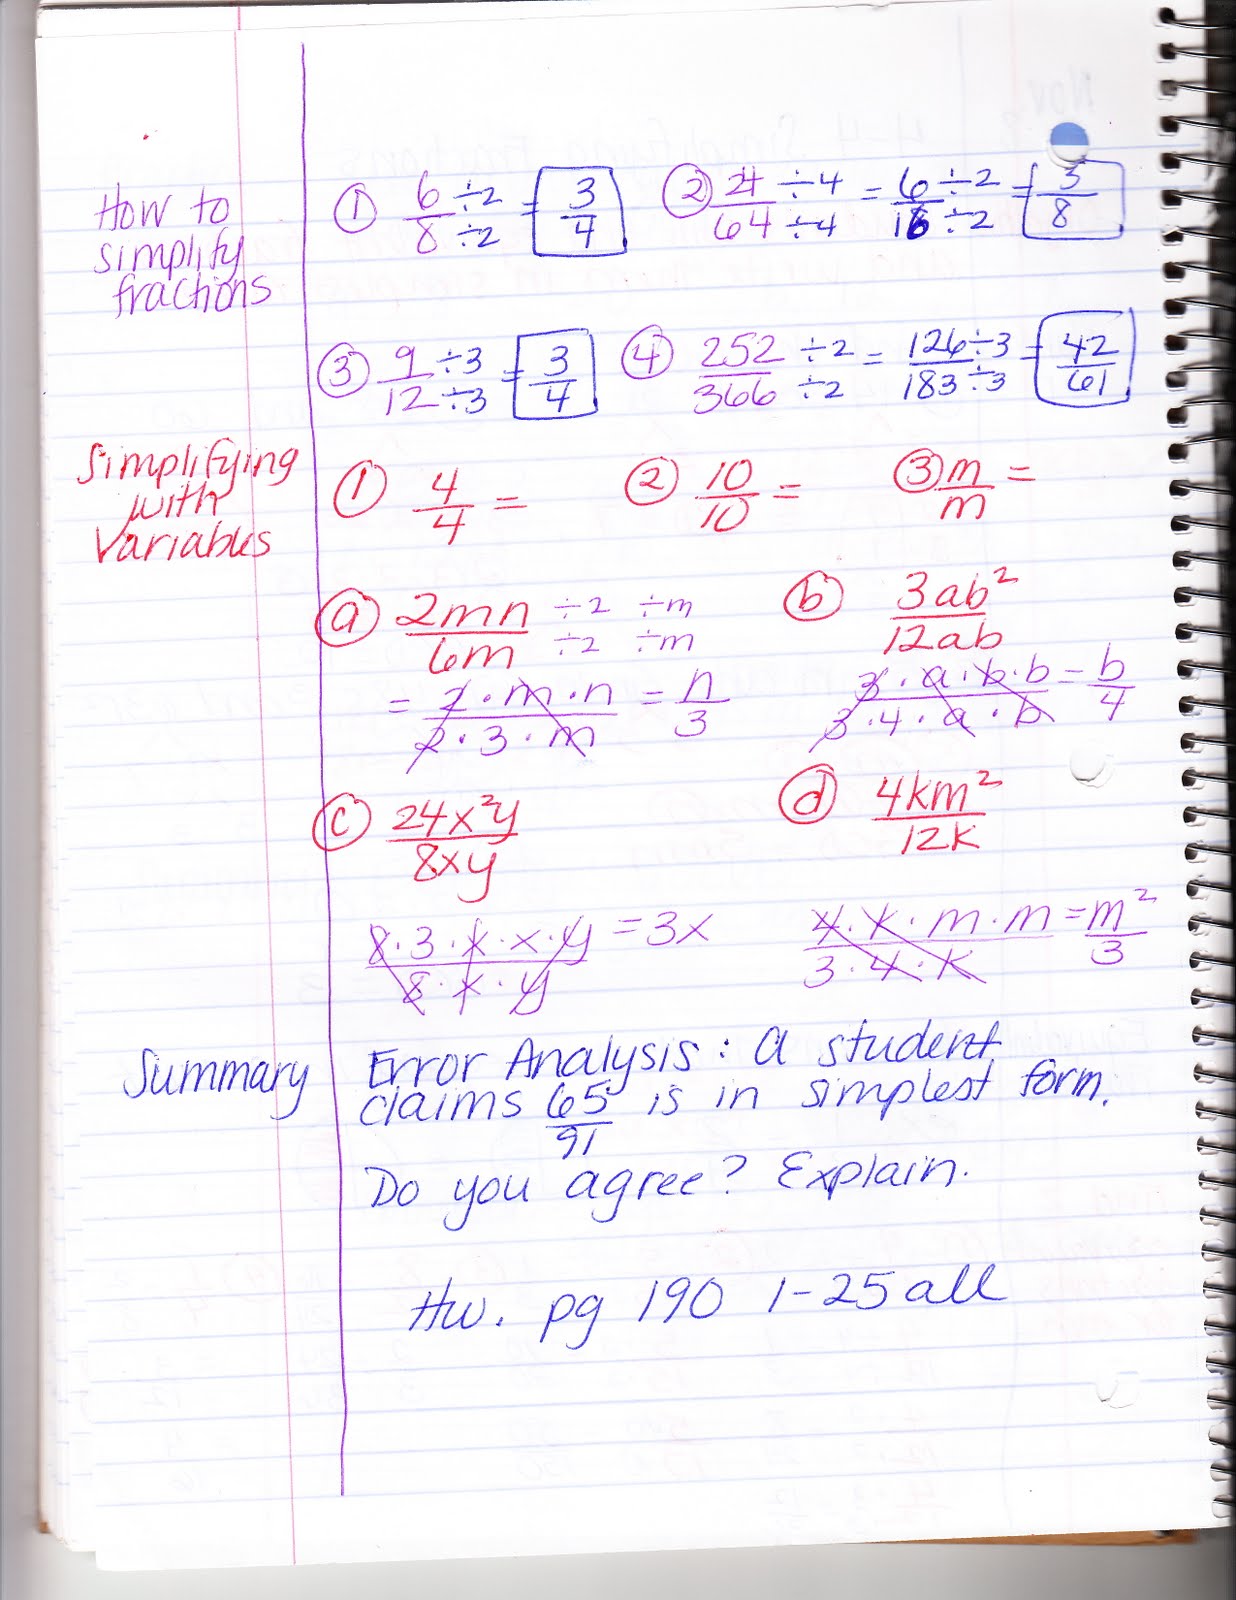 How to
simplify
fractions
① 6/8 ÷2/÷2 = 3/4 ② 24/64 ÷4/÷4 = 6/16 ÷2/÷2 = 3/8
③ 9/12 ÷3/÷3 = 3/4 ④ 252/366 ÷2/÷2 = 126/183 ÷3/÷3 = 42/61
Simplifying
with
Variables
① 4/4 = ② 10/10 = ③ m/m =
ⓐ 2mn/6m ÷2/÷2 ÷m/÷m ⓑ 3ab²/12ab
= 2·m·n/2·3·m = n/3 3·a·b·b/3·4·a·b = b/4
ⓒ 24x²y/8xy ⓓ 4km²/12k
8·3·x·x·y/8·x·y = 3x 4·k·m·m/3·4·k = m²/3
Summary
Error Analysis: A student
claims 65/91 is in simplest form.
Do you agree? Explain.
Hw. pg 190 1-25 all